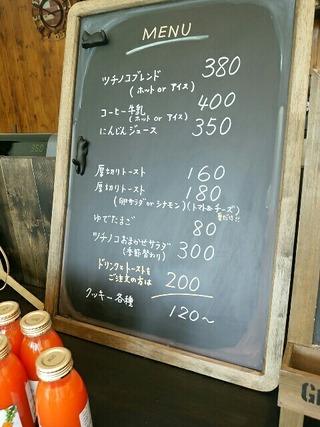 MENU
ツチノコブレンド 380
(ホット or アイス)
コーヒー牛乳 400
(ホット or アイス)
にんじんジュース 350
厚切りトースト 160
厚切りトースト 180
(卵サラダ or シナモン)(トマト&チーズ)
ゆでたまご 80
ツチノコおまかせサラダ 300
(季節替わり)
ドリンクとトーストを
ご注文の方は 200
クッキー各種 120〜